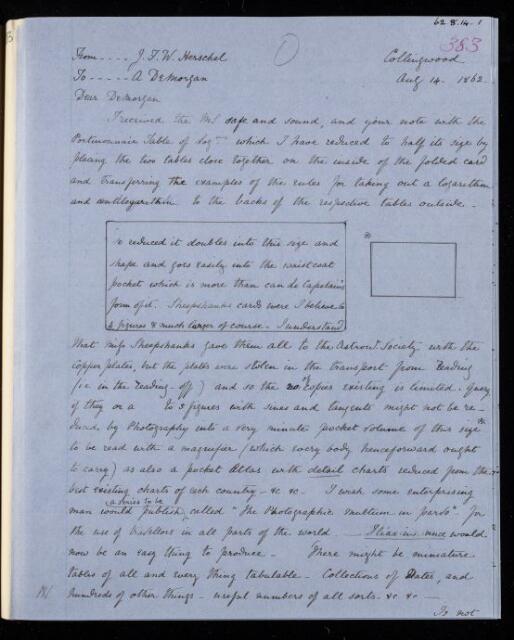 62.8.14.1
383
From ---- J. F. W. Herschel
Collingwood
To ----- A DeMorgan
Aug 14. 1862
Dear DeMorgan
I received the MS safe and sound, and your note with the
Portmonnaie Table of Logms which I have reduced to half its size by
placing the two tables close together on the inside of the folded card
and transferring the examples of the rules for taking out a logarithm
and antilogarithm to the backs of the respective tables outside -
so reduced it doubles into this size and
shape and goes easily into the waistcoat
pocket which is more than can do Capstains
form of it. Sheepshanks cards were I believe to
4 figures & much larger of course - I understand
that miss Sheepshanks gave them all to the Astronl Society with the
copper plates, but the plates were stolen in the transport from Reading
(i.e. in the Reading-off) and so the no of copies existing is limited. Query
if they or a to 5 figures with sines and tangents might not be re-
duced by Photography into a very minute pocket volume of this size
to be read with a magnifier (which every body henceforward ought
to carry) as also a pocket Atlas with detail charts reduced from the
best existing charts of each country - &c &c - I wish some enterprising
man would publish a series to be called "The Photographic multum in parvo" - for
the use of travellors in all parts of the world - Ilias in nuce would
now be an easy thing to produce - There might be miniature
tables of all and every thing tabulable - Collections of Dates, and
hundreds of other things - useful numbers of all sorts - &c &c -
Is not